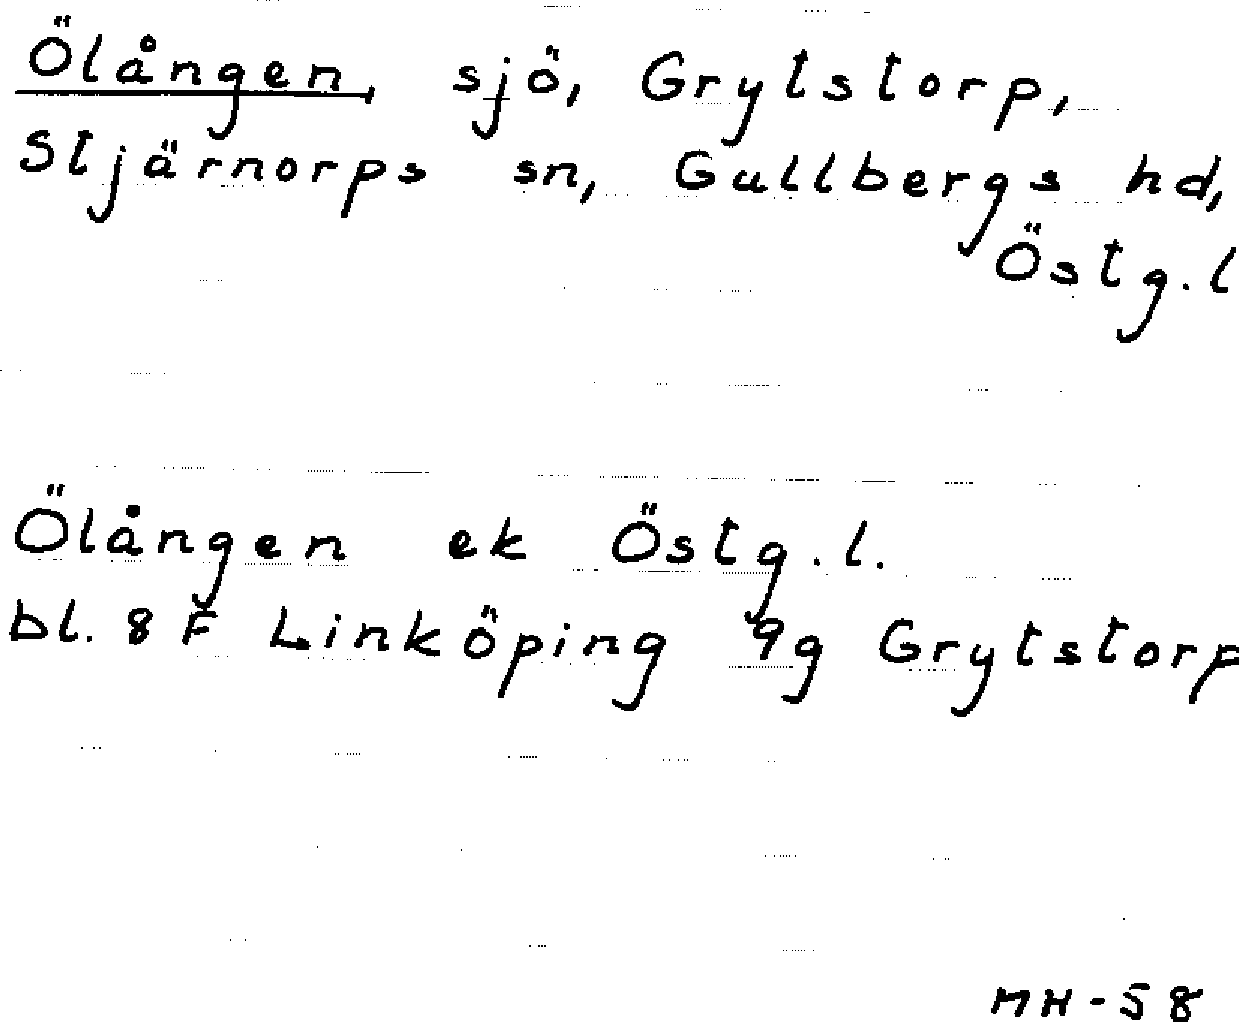 Ölången, sjö, Grytstorp,
Stjärnorps sn, Gullbergs hd,
Östg.l
Ölången ek Östg.l.
bl. 8 F Linköping 9g Grytstorp
MH-58